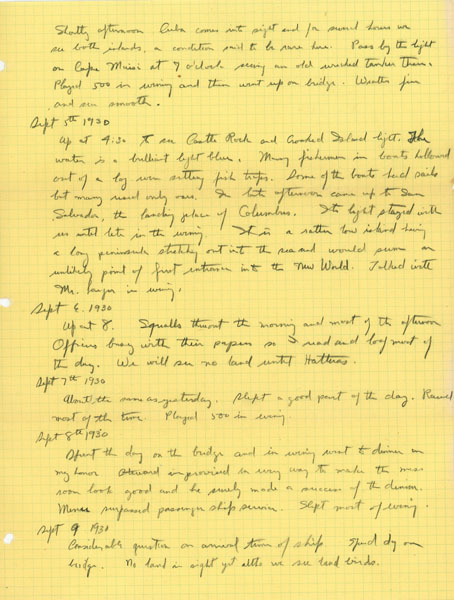 Shortly afternoon Cuba comes into sight and for several hours we
see both islands, a condition said to be rare here. Pass by the light
on Cape Maisi at 7 o'clock seeing an old wrecked tanker there.
Played 500 in evening and then went up on bridge. Weather fine
and sea smooth.
Sept 5th 1930
Up at 4:30 to see Castle Rock and Crooked Island light. The
water is a brilliant light blue. Many fishermen in boats hollowed
out of a log were setting fish traps. Some of the boats had sails
but many used only oars. In late afternoon came up to San
Salvador, the landing place of Columbus. Its light stayed with
us until late in the evening. It is a rather low island having
a long peninsula stretching out into the sea and would seem an
unlikely point of first entrance into the New World. Talked with
Mr. in evening.
Sept 6, 1930
Up at 8. Squalls thruout the morning and most of the afternoon
Officers busy with their papers so I read and loaf most of
the day. We will see no land until Hatteras.
Sept 7th 1930
About the same as yesterday. Slept a good part of the day. Rained
most of the time. Played 500 in evening.
Sept 8th 1930
Spent the day on the bridge and in evening went to dinner in
my honor. Steward improvised in every way to make the mess
room look good and he surely made a success of the dinner.
Menu surpassed passenger ship service. Slept most of evening.
Sept 9 1930
Considerable question on arrival time of ship. Spend day on
bridge. No land in sight yet altho we see land birds.